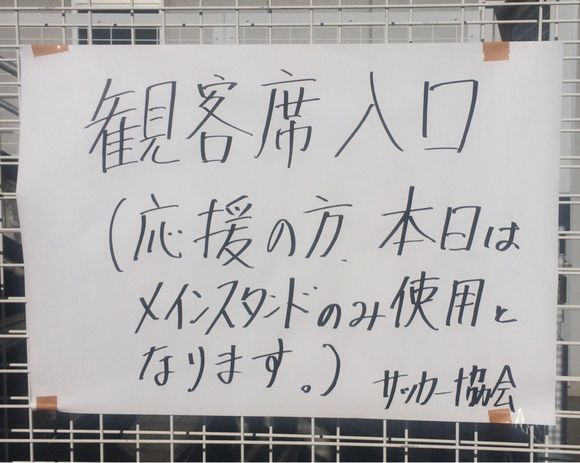 観客席入口
(応援の方、本日は
メインスタンドのみ使用と
なります。)
サッカー協会